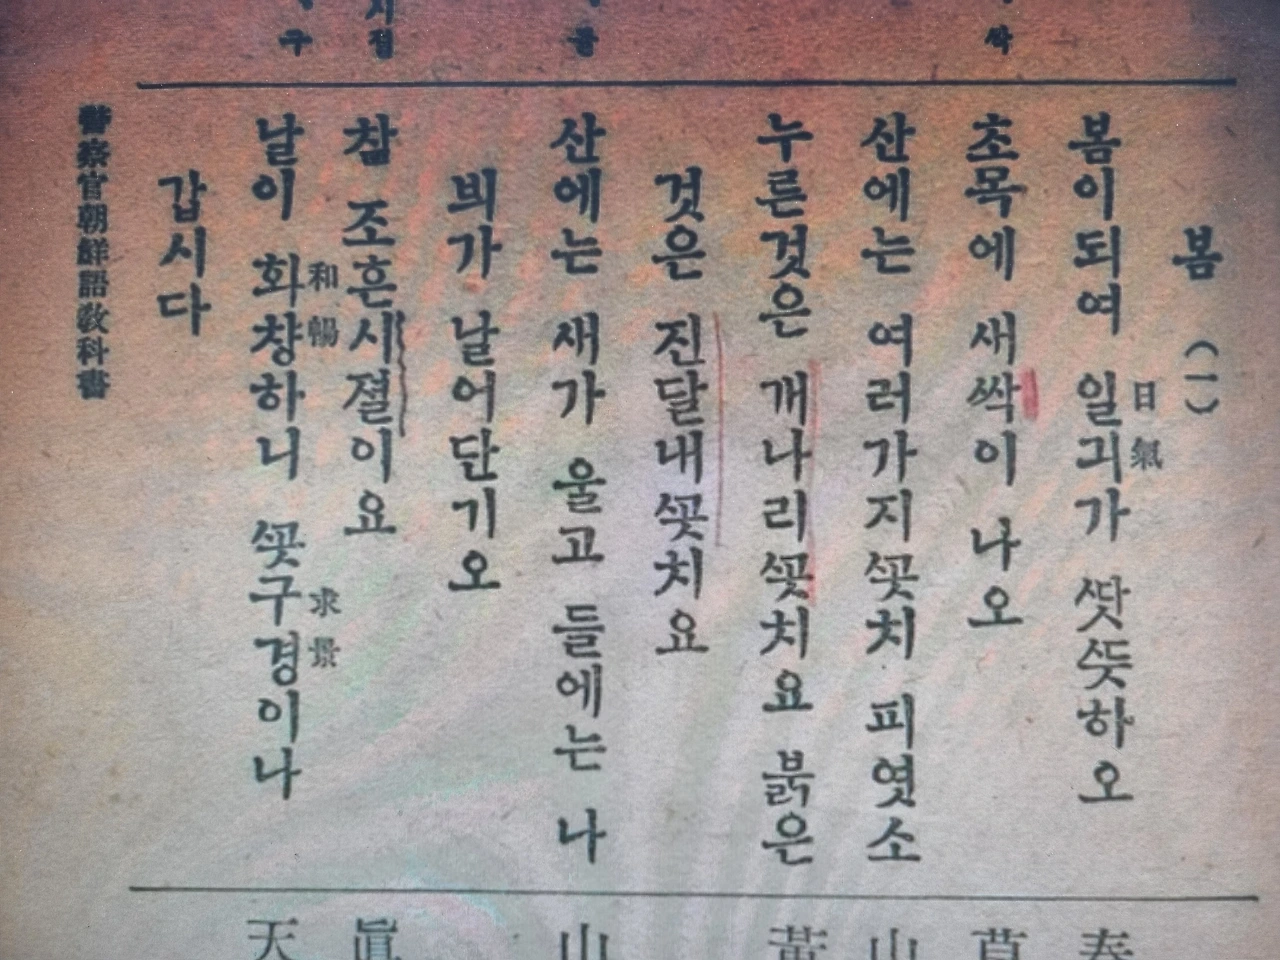 싹
들
시절
구
봄 (一)
봄이되여 일긔가 ᄯᅡᆺᄯᅳᆺ하오
日氣
초목에 새싹이 나오
산에는 여러가지ᄭᅩᆺ치 피엿소
누른것은 개나리ᄭᅩᆺ치요 붉은
것은 진달내ᄭᅩᆺ치요
산에는 새가 울고 들에는 나
븨가 날어단기오
참 조흔시졀이요
날이 화창하니 ᄭᅩᆺ구경이나
和暢 求景
갑시다
警察官朝鮮語敎科書
春
草
山
黃
山
眞
天